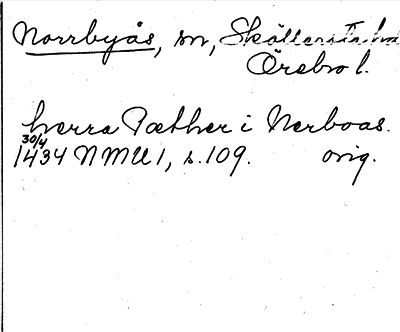 Norrbyås, sn, Sköllersta hd
Örebro l.
herra Pæther i Nerboas.
30/4
1434 NMU 1, s. 109. orig.